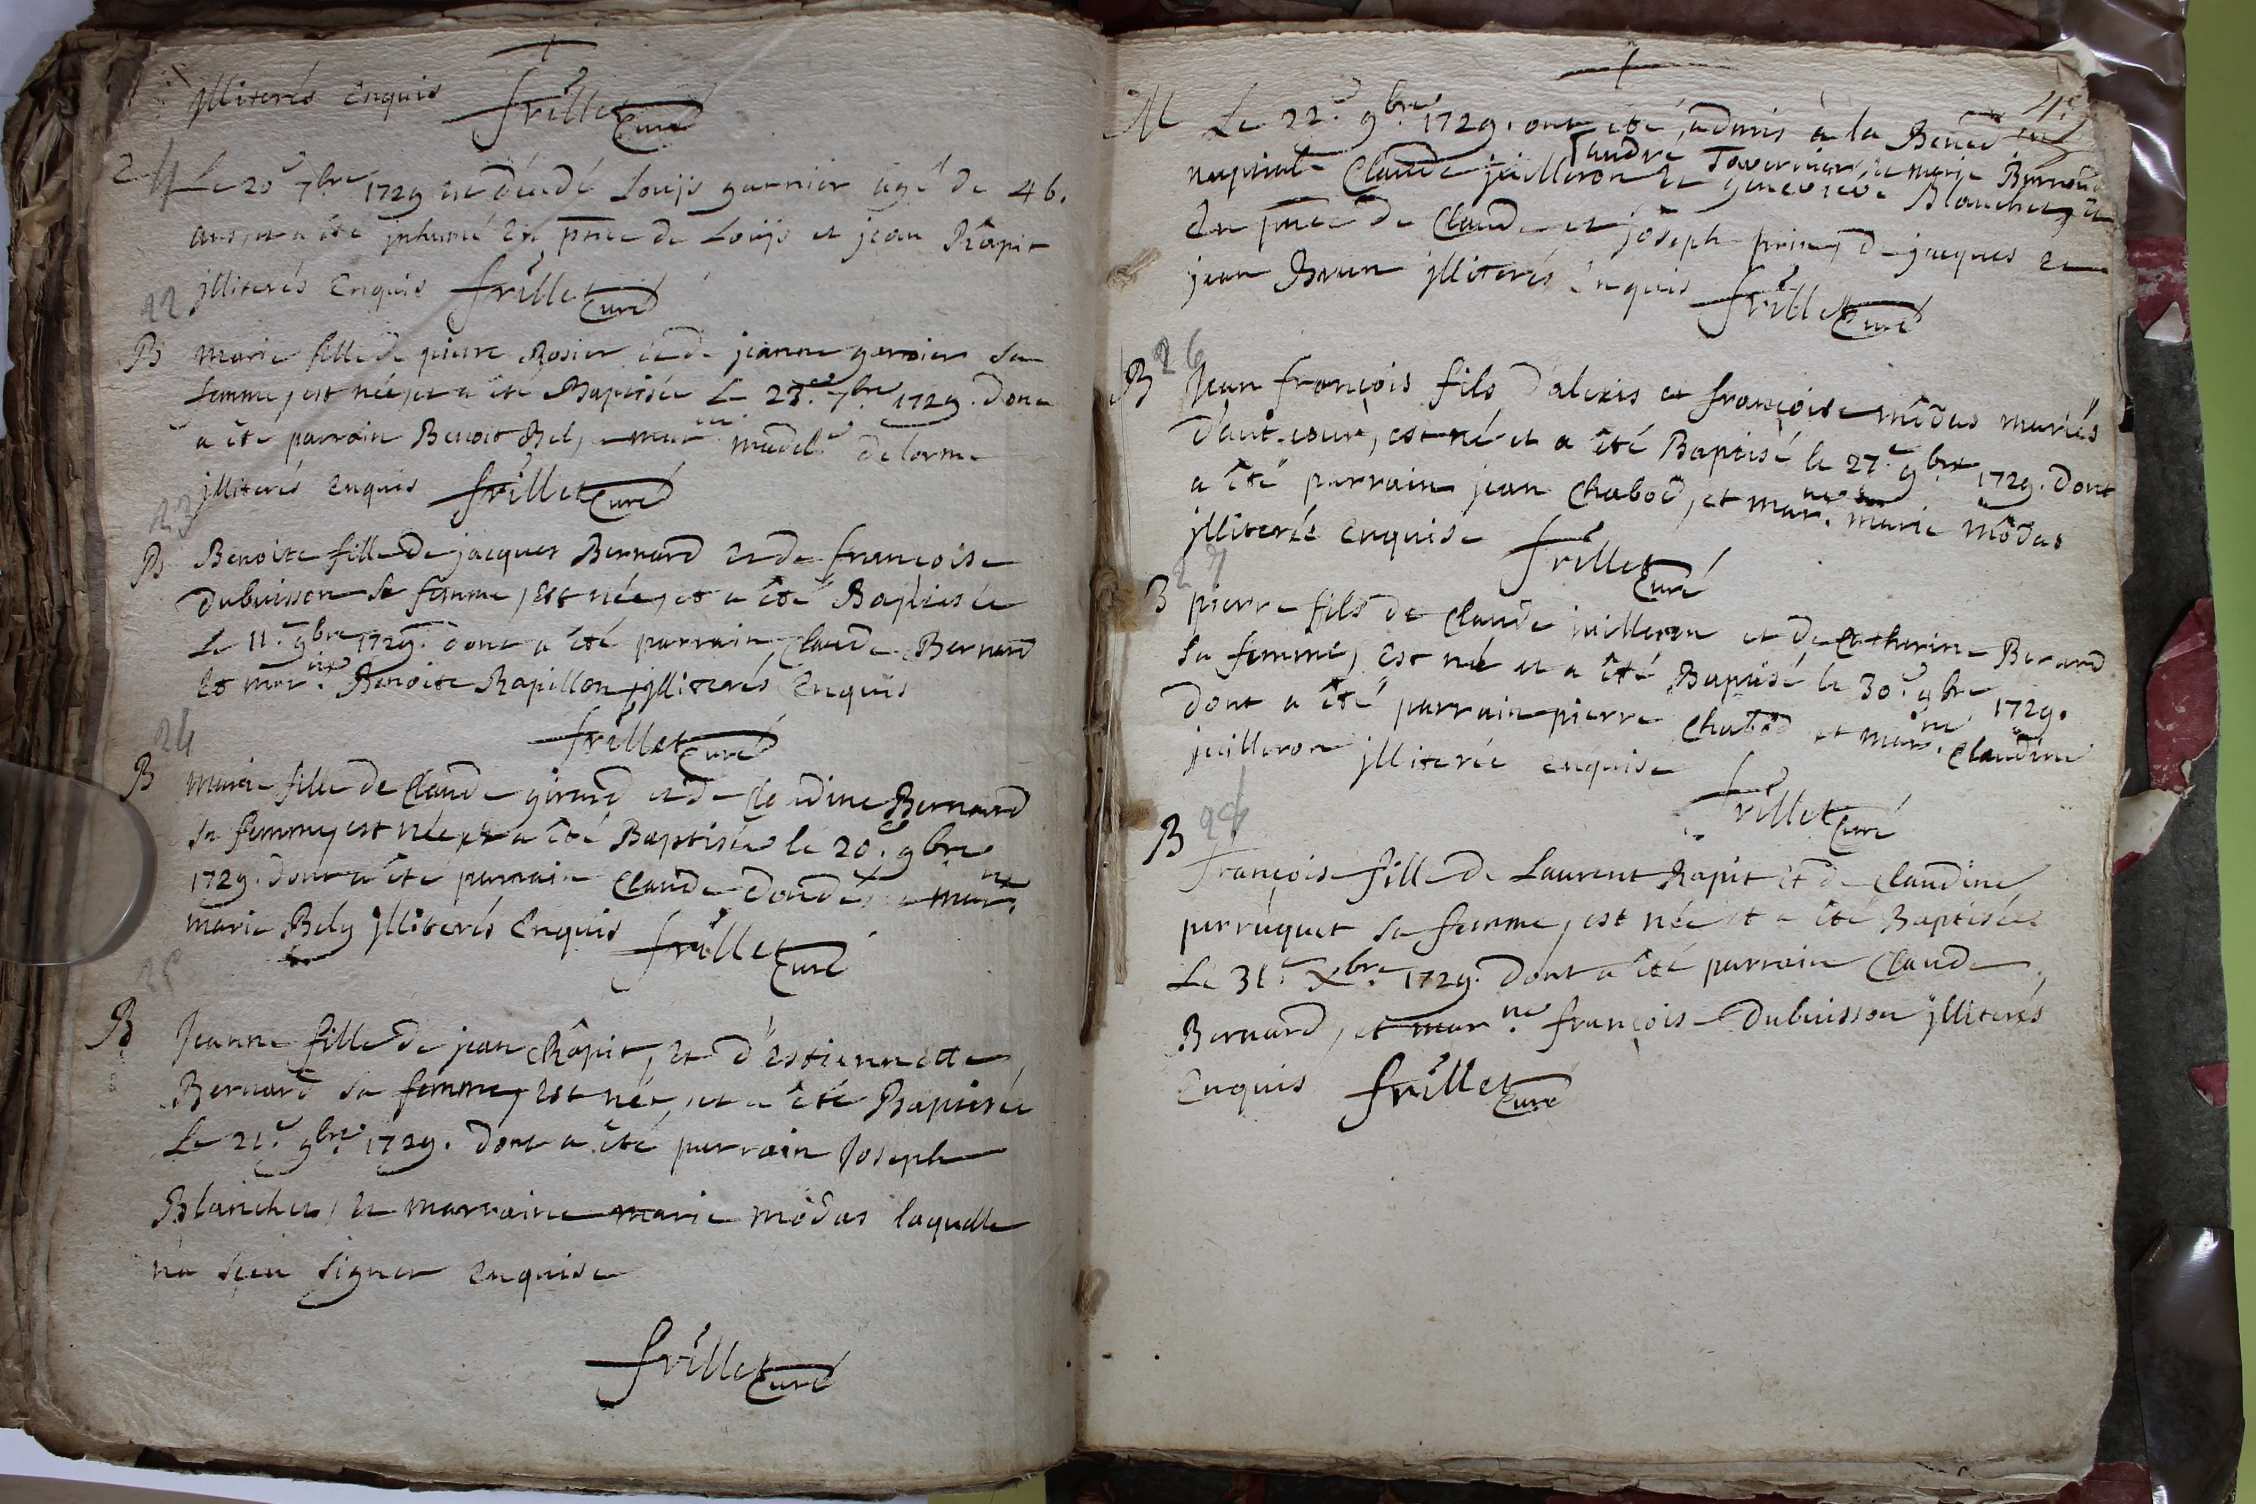 jlliterés enquis frillet Curé
Le 20e 7bre 1729 est décedé Louijs garnier agé de 46.
ans, et a été jnhumé En pnce de Louijs et jean Râpit
jlliterés Enquis frillet Curé
22
B Marie fille de pierre Rosier et de jeanne garnier sa
femme, est née, et a été Baptisée Le 23.e 7bre 1729. Dont
a êté parrain Benoit Bel, et marne madelne delorme
jlliterés enquis frillet Curé
23
B Benoite fille de jacques Bernard et de françoise
Dubuisson sa femme, Est née, et a êté Baptisée
Le 11.e 9bre 1729. dont a êté parrain, Claude Bernard
Et marne Benoite Rapillon, jlliterés Enquis
frillet Curé
24
B Marie fille de Claude girard et de Claudine Bernard
sa femme, est née, et a êté Baptisée le 20.e 9bre
1729. Dont a êté parrain Claude Dondé, et marne
marie Bely jlliterés Enquis frillet Curé
25
B Jeanne fille de jean Râpit, et d'Estiennette
Bernard sa femme, est née, et a été Baptisée
Le 21.e 9bre 1729. Dont a été parrain Joseph
Blanchet, et marraine marie môdas laquelle
na sçeu signer enquise
frillet Curé
M Le 22.e 9bre 1729. ont été, admis à la Bened on
nuptiale Claude juilleron et genevieve Blanchet, et
andré Tavernier, et marie Bernoud
En pnce de Claude et joseph prin, De jacques et
jean Brun jlliterés Enquis frillet Curé
26
B Jean françois fils d'alexis et françoise môdas mariés
D'autecour, est né et a êté Baptisé le 27.e 9bre 1729. Dont
a êté parrain jean Chabod, et marne marie môdas
jlliterée enquise frillet Curé
27
B pierre fils de Claude juilleron et de Catherine Berard
sa femme, Est né et a êté Baptisé le 30.e 9bre 1729.
Dont a êté parrain pierre Chabod et marne Claudine
juilleron jlliterée enquise frillet Curé
28
B françoise fille de Laurent Rapit et de Claudine
perruquet sa femme, est née et a êté Baptisée
Le 31.e Xbre 1729. Dont a êté parrain Claude
Bernard, et marne françoise Dubuisson jlliterés
Enquis frillet Curé